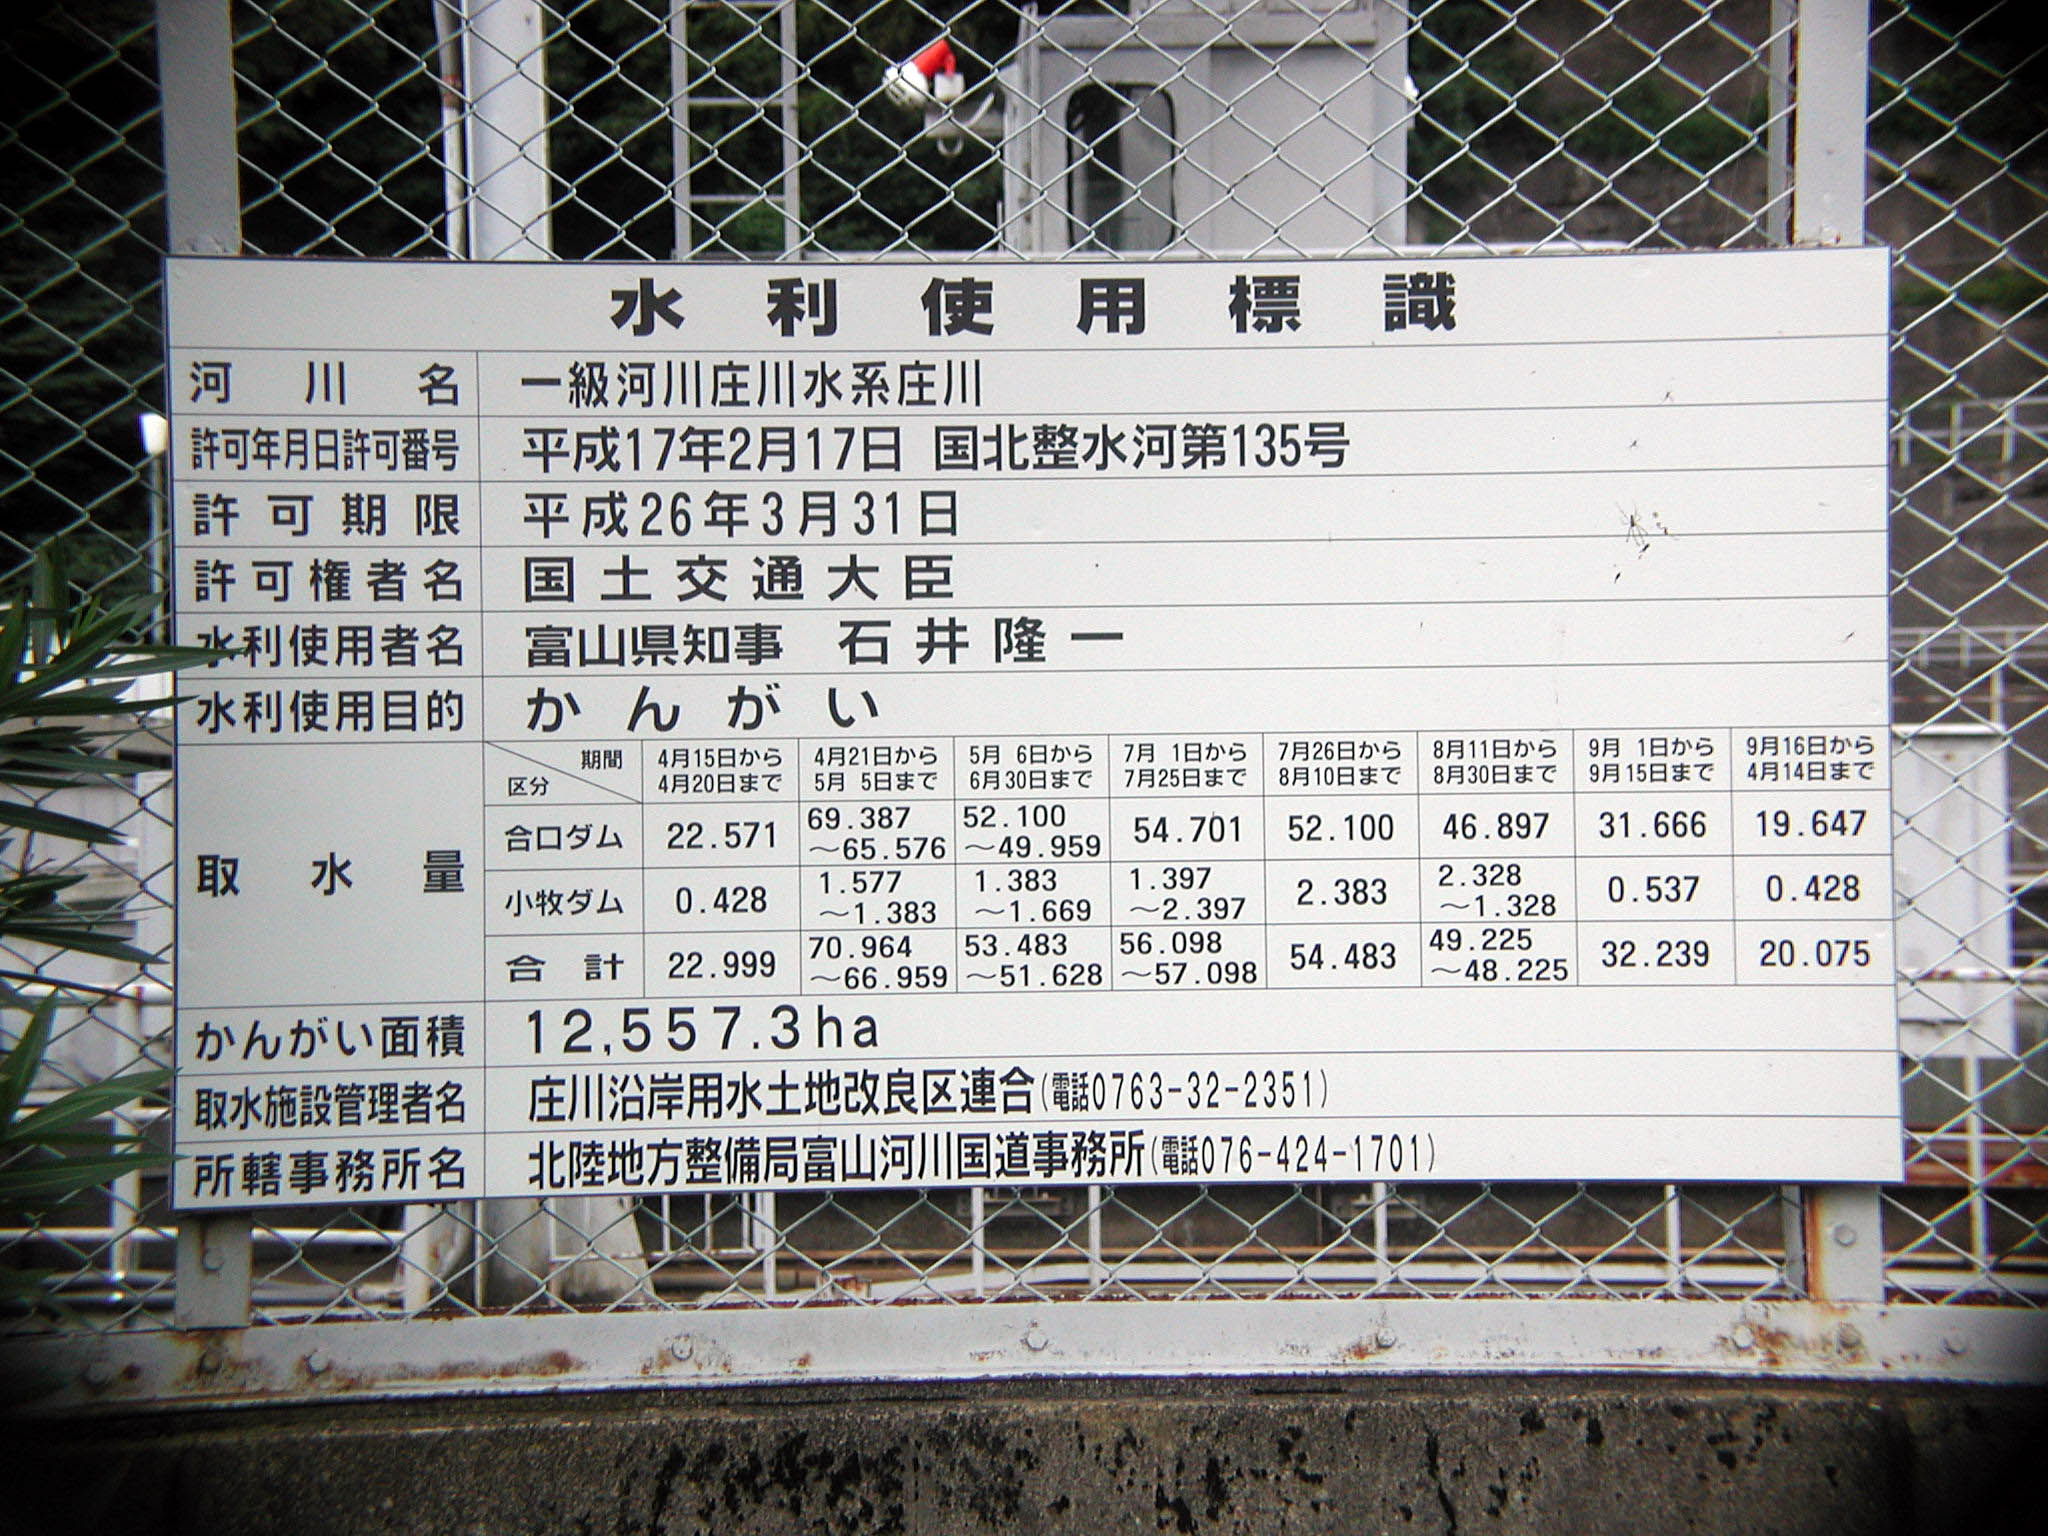 水利使用標識
河川名 一級河川庄川水系庄川
許可年月日許可番号 平成17年2月17日 国北整水河第135号
許可期限 平成26年3月31日
許可権者名 国土交通大臣
水利使用者名 富山県知事 石井隆一
水利使用目的 かんがい
取水量
期間 4月15日から 4月21日から 5月 6日から 7月 1日から 7月26日から 8月11日から 9月 1日から 9月16日から
区分 4月20日まで 5月 5日まで 6月30日まで 7月25日まで 8月10日まで 8月30日まで 9月15日まで 4月14日まで
合口ダム 22.571 69.387～65.576 52.100～49.959 54.701 52.100 46.897 31.666 19.647
小牧ダム 0.428 1.577～1.383 1.383～1.669 1.397～2.397 2.383 2.328～1.328 0.537 0.428
合計 22.999 70.964～66.959 53.483～51.628 56.098～57.098 54.483 49.225～48.225 32.239 20.075
かんがい面積 12,557.3ha
取水施設管理者名 庄川沿岸用水土地改良区連合(電話0763-32-2351)
所轄事務所名 北陸地方整備局富山河川国道事務所(電話076-424-1701)